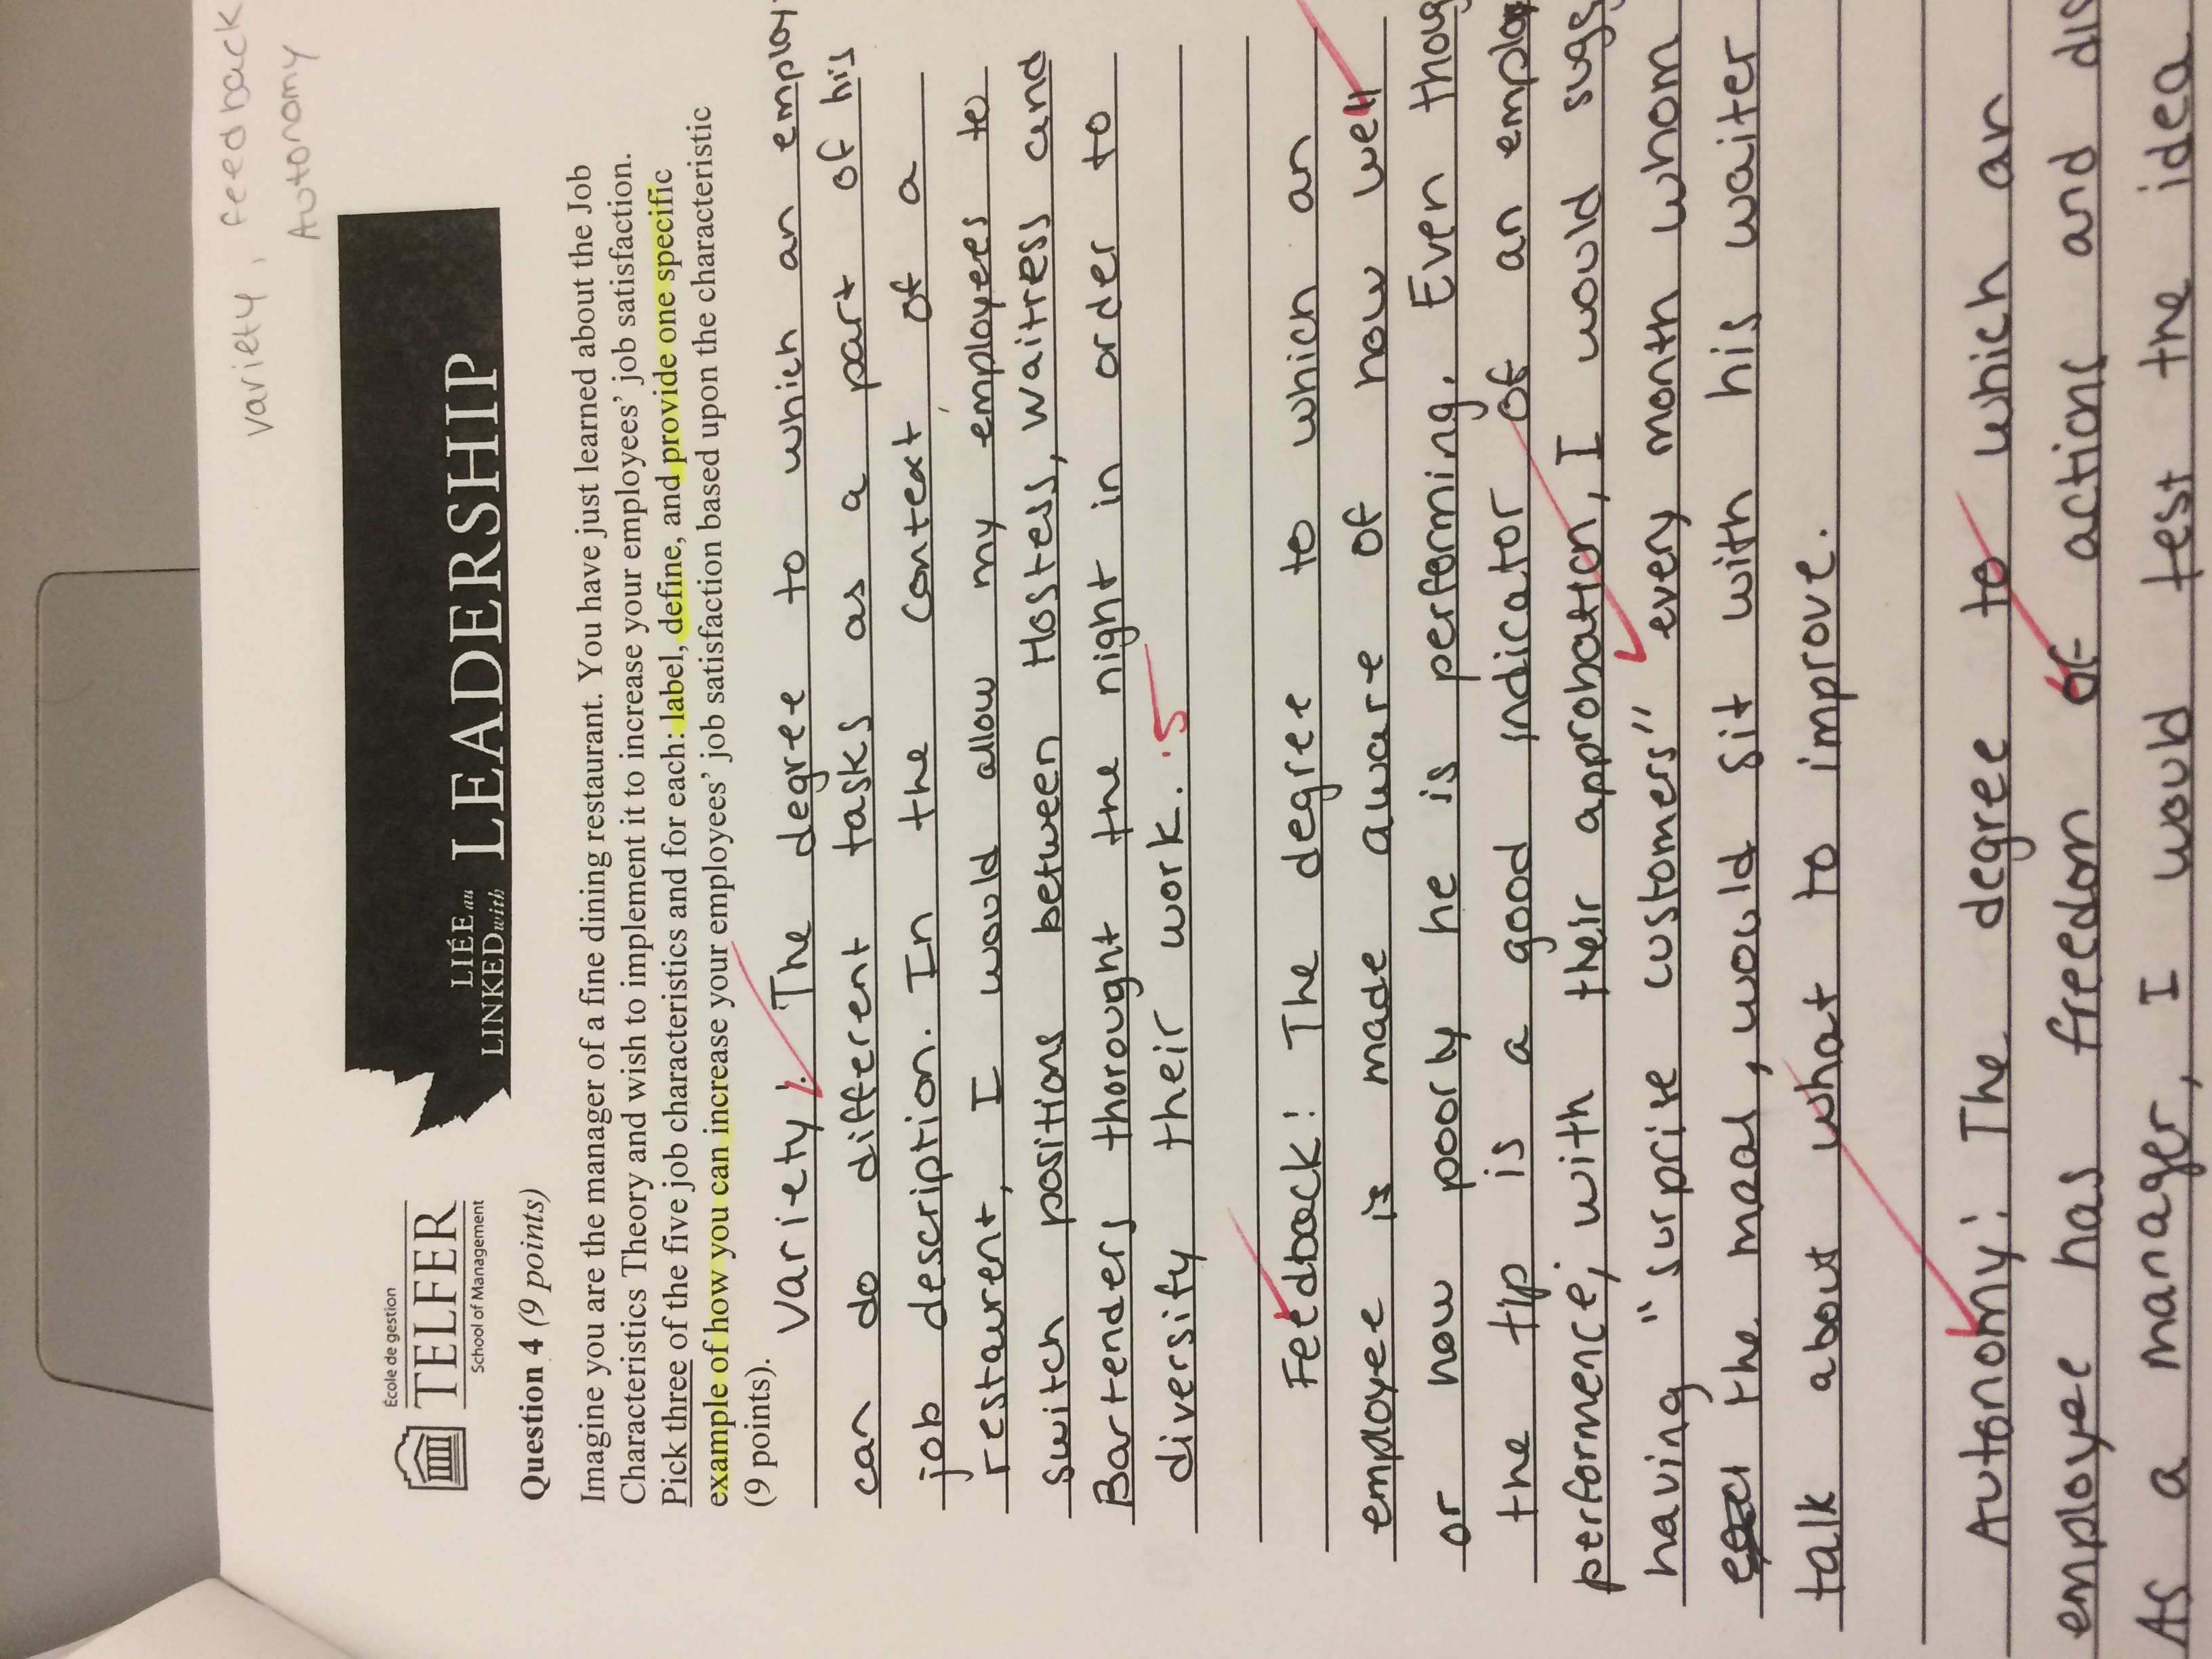 variety, feedback
Autonomy
École de gestion
TELFER
School of Management
LIÉE au
LINKED with
LEADERSHIP
Question 4 (9 points)
Imagine you are the manager of a fine dining restaurant. You have just learned about the Job
Characteristics Theory and wish to implement it to increase your employees' job satisfaction.
Pick three of the five job characteristics and for each: label, define, and provide one specific
example of how you can increase your employees' job satisfaction based upon the characteristic
(9 points).
Variety: The degree to which an employ
can do different tasks as a part of his
job description. In the context of a
restaurent, I would allow my employees to
switch positions between Hostess, waitress and
Bartenders thorought the night in order to
diversify their work. .5
Feedback: The degree to which an
employee is made aware of how well
or how poorly he is performing. Even thoug
the tip is a good indicator of an employ
performence, with their approbation, I would sugg
having "surprise customers" every month whom
the meal, would sit with his waiter
talk about what to improve.
Autonomy: The degree to which an
employee has freedom of actions and dis
As a manager, I would test the idea